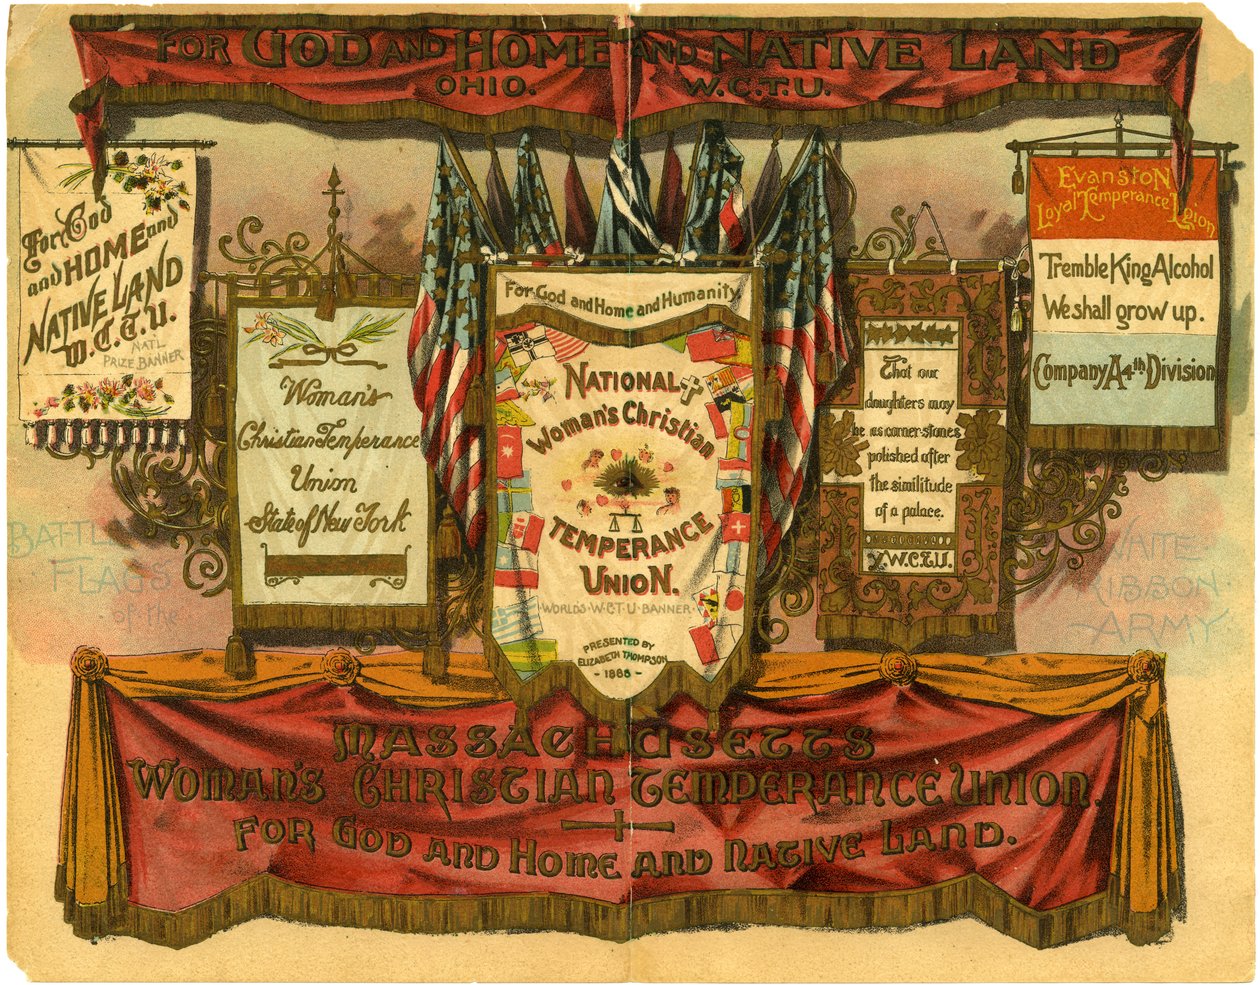 FOR GOD AND HOME AND NATIVE LAND
OHIO. W.C.T.U.
For God
and HOME and
NATIVE LAND
W.C.T.U.
NATL
PRIZE BANNER
Woman's
Christian Temperance
Union
State of New York
For God and Home and Humanity
NATIONAL
Woman's Christian
TEMPERANCE
UNION.
WORLD'S W.C.T.U BANNER
PRESENTED BY
ELIZABETH THOMPSON
- 1886 -
That our
daughters may
be as corner-stones
polished after
the similitude
of a palace.
Y.W.C.T.U.
Evanston
Loyal Temperance Legion
Tremble King Alcohol
We shall grow up.
Company A 4th Division
BATTLE
FLAGS
of the
WHITE
RIBBON
ARMY
MASSACHUSETTS
WOMAN'S CHRISTIAN TEMPERANCE UNION.
FOR GOD AND HOME AND NATIVE LAND.